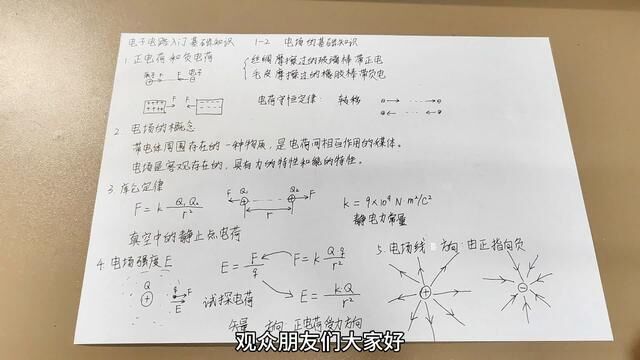 电子电路入门基础知识 1-2 电场的基础知识
1. 正电荷和负电荷
丝绸摩擦过的玻璃棒带正电
毛皮摩擦过的橡胶棒带负电
F F 电子
F F
电荷守恒定律: 转移
2 电场的概念
带电体周围存在的一种物质,是电荷间相互作用的媒体。
电场是客观存在的,具有力的特性和能的特性。
3 库仑定律
F = k Q₁Q₂/r²
F Q₁ Q₂ F
r
k = 9×10⁹ N m²/C²
静电力常量
真空中的静止点电荷
4. 电场强度 E
Q q F
E
试探电荷
E = F/q F = k Q q/r²
E = k Q/r²
矢量 方向: 正电荷受力方向
5. 电场线 方向: 由正指向负
观众朋友们大家好